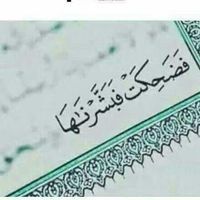 فَضَحِكَتْ فَبَشَّرْنَٰهَا